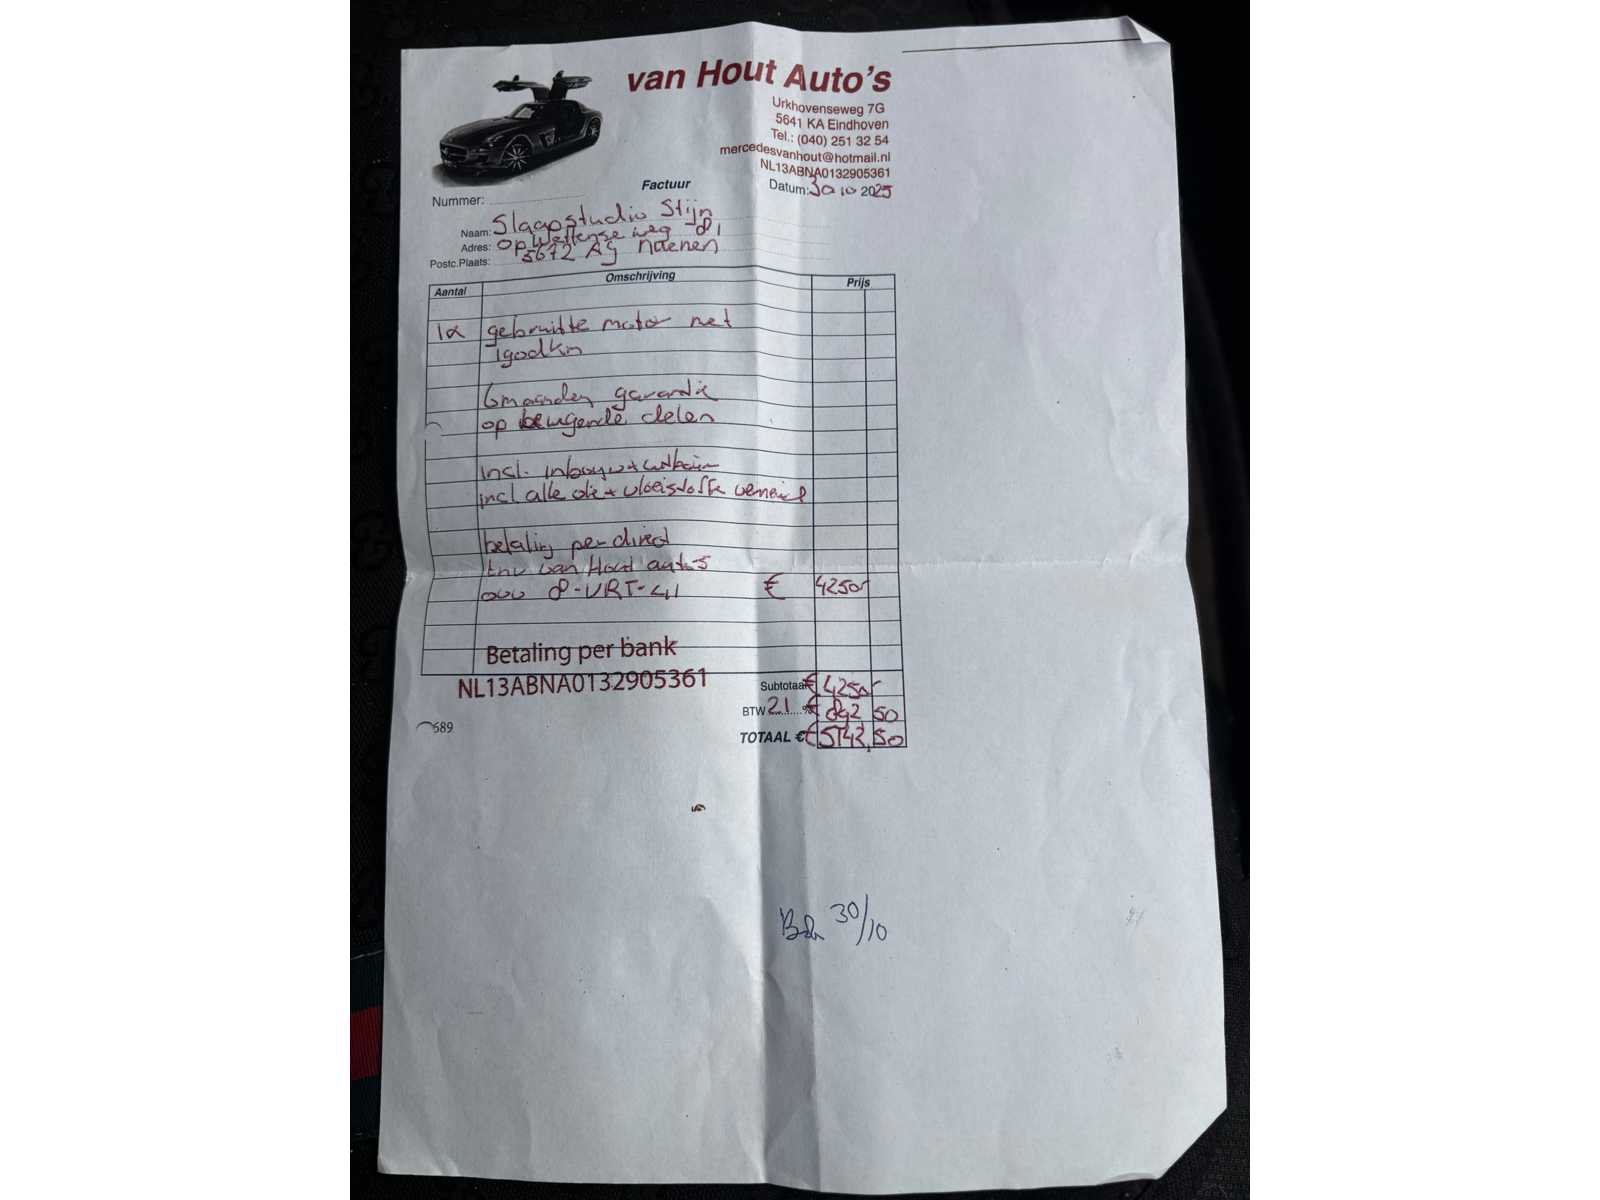 van Hout Auto's
Urkhovenseweg 7G
5641 KA Eindhoven
Tel.: (040) 251 32 54
mercedesvanhout@hotmail.nl
NL13ABNA0132905361
Factuur
Datum: 30 10 2025
Nummer:
Naam: Slaapstudio Stijn
Adres: opwettenseweg 81
Postc.Plaats: 5672 AG nuenen
Aantal Omschrijving Prijs
1x gebruikte motor met
6maanden garantie
op bewegende delen
incl. inbouw +
incl alle olie + vloeistoffe
betaling per direct
tnv van Hout auto-s
ovv 8-VRT-41 € 4250,-
Betaling per bank
NL13ABNA0132905361
Subtotaal € 4250,-
BTW 21 % € 892 50
TOTAAL € 5142,50
689
30/10